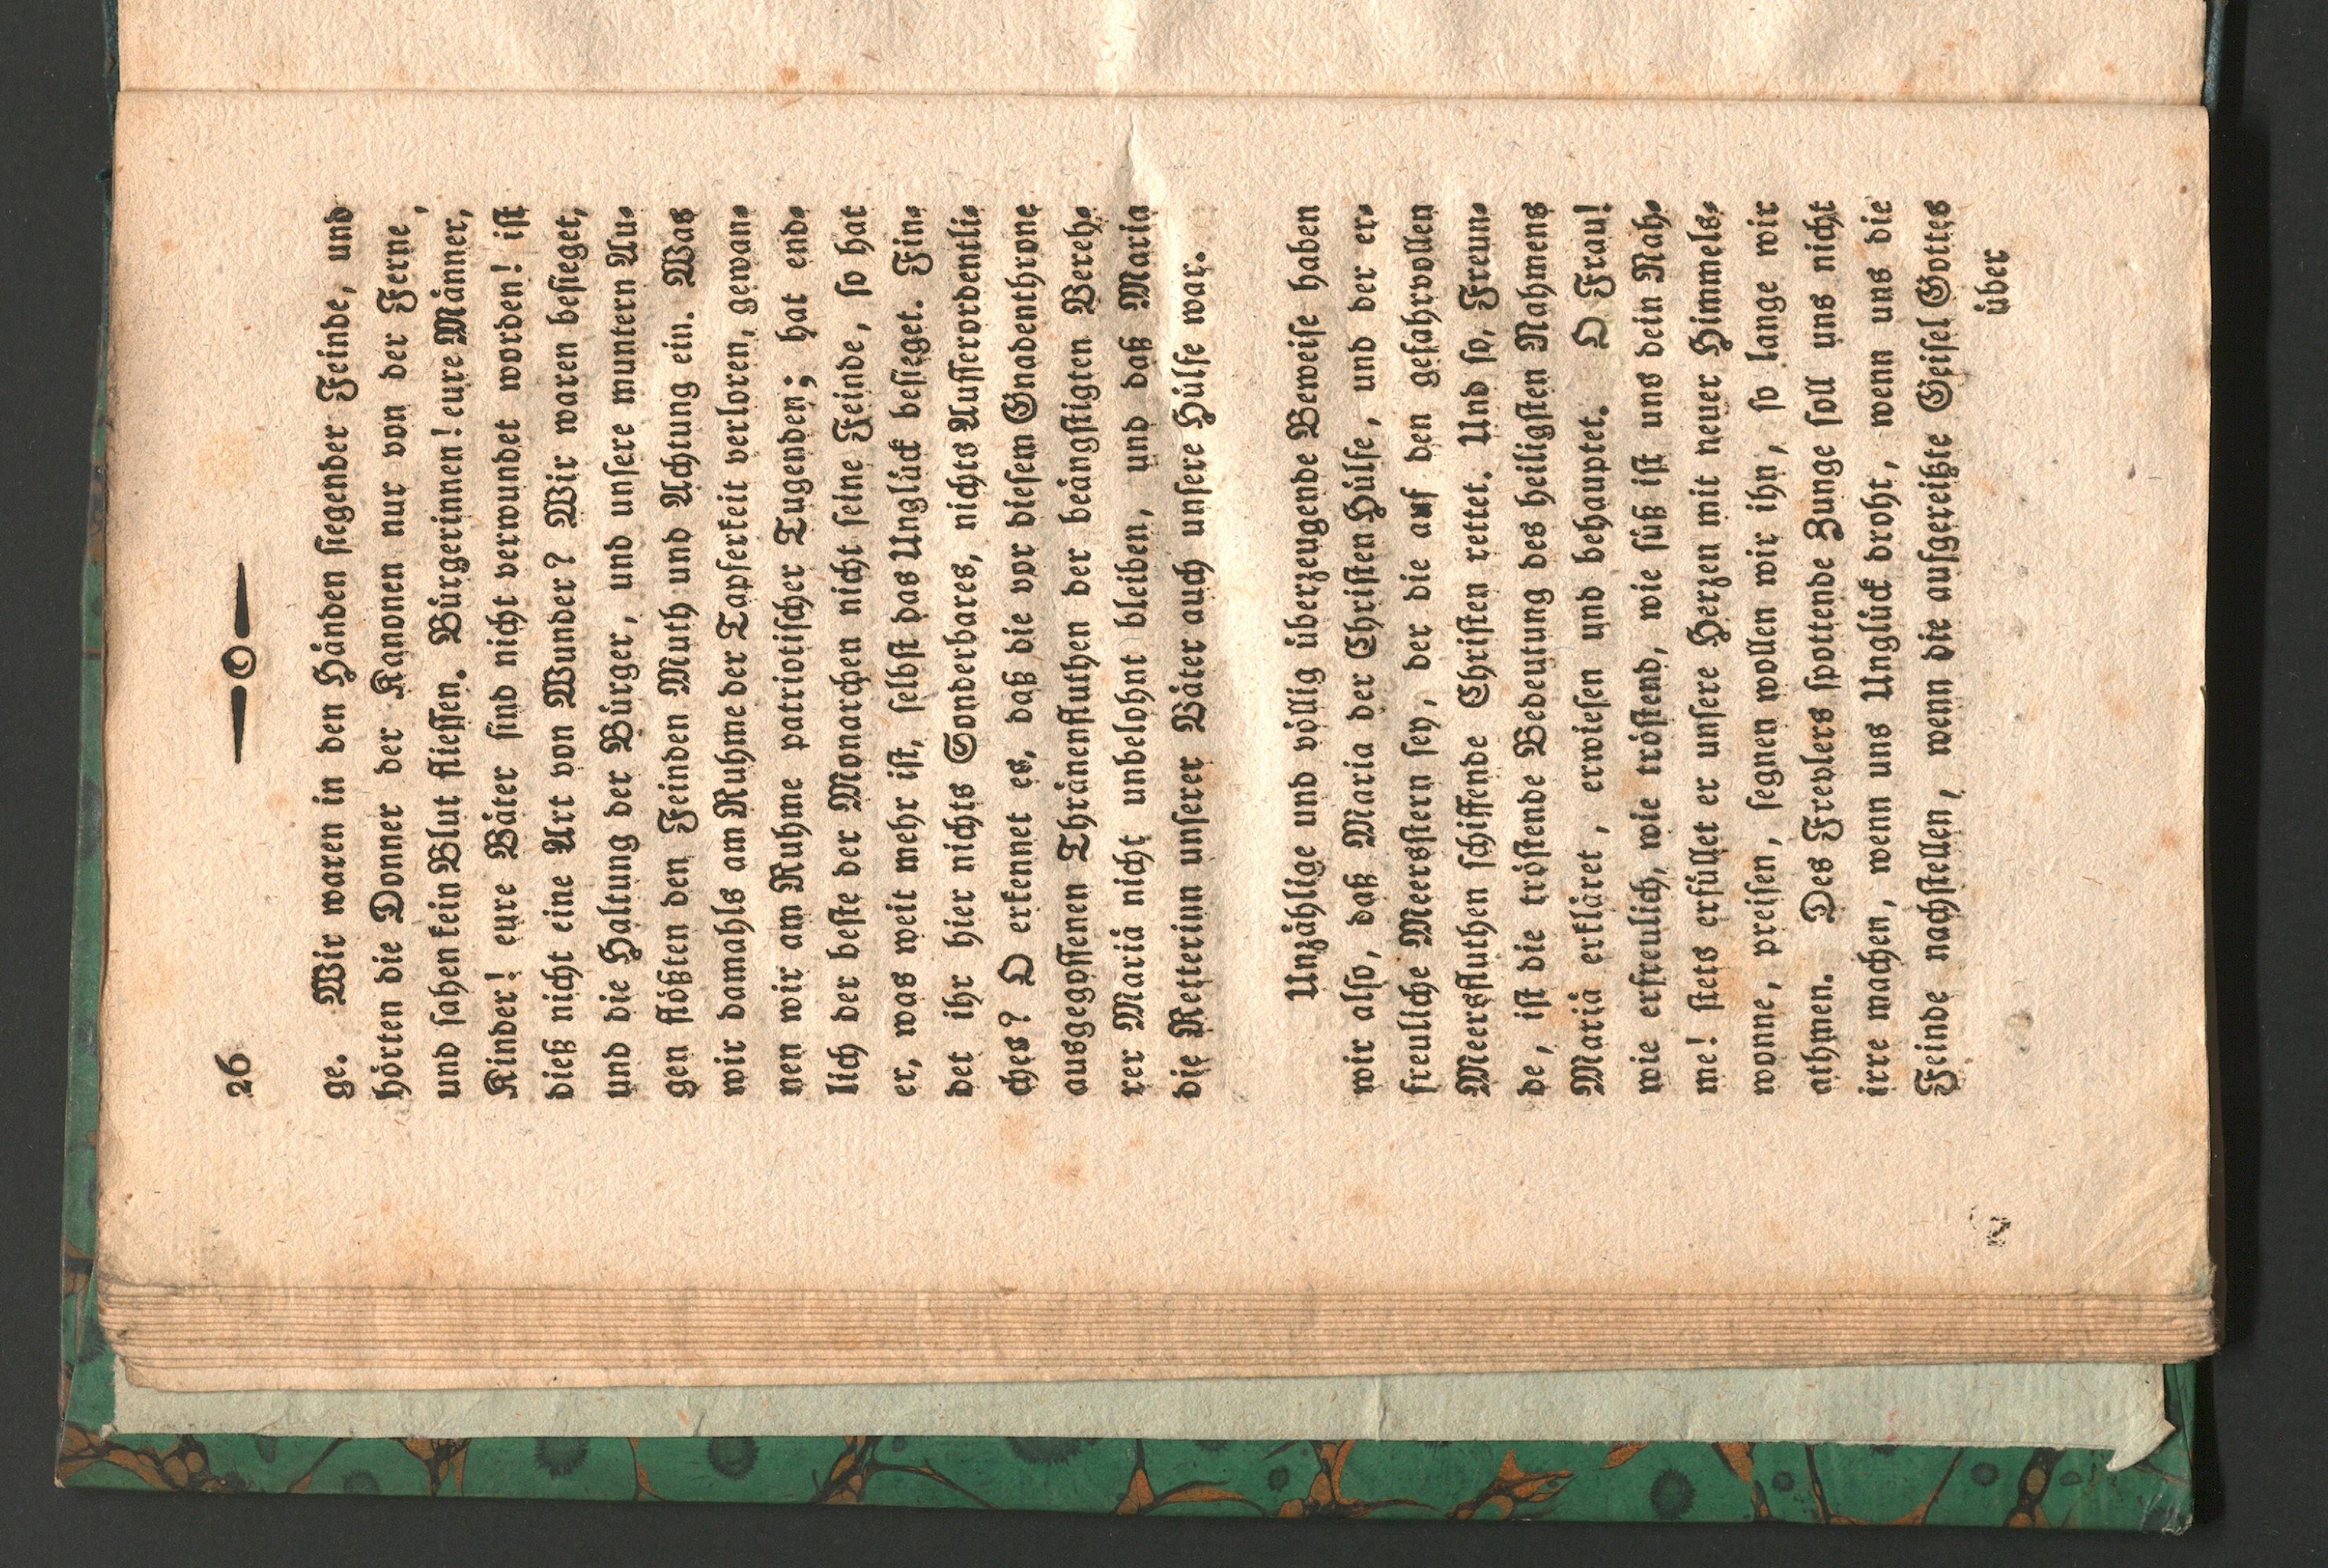 26
ge. Wir waren in den Händen siegender Feinde, und
hörten die Donner der Kanonen nur von der Ferne,
und sahen kein Blut fliessen. Bürgerinnen! eure Männer,
Kinder! eure Väter sind nicht verwundet worden! ist
dieß nicht eine Art von Wunder? Wir waren besieget,
und die Haltung der Bürger, und unsere muntern Au-
gen flößten den Feinden Muth und Achtung ein. Was
wir damahls am Ruhme der Tapferkeit verloren, gewan-
nen wir am Ruhme patriotischer Tugenden; hat end-
lich der beste der Monarchen nicht seine Feinde, so hat
er, was weit mehr ist, selbst das Unglück besieget. Fin-
det ihr hier nichts Sonderbares, nichts Ausserordentli-
ches? O erkennet es, daß die vor diesem Gnadenthrone
ausgegossenen Thränenfluthen der beängstigten Vereh-
rer Mariä nicht unbelohnt bleiben, und daß Maria
die Retterinn unserer Väter auch unsere Hülfe war.
Unzählige und völlig überzeugende Beweise haben
wir also, daß Maria der Christen Hülfe, und der er-
freuliche Meersstern sey, der die auf den gefahrvollen
Meersfluthen schiffende Christen rettet. Und so, Freun-
de, ist die tröstende Bedeutung des heiligsten Nahmens
Mariä erkläret, erwiesen und behauptet. O Frau!
wie erfreulich, wie tröstend, wie süß ist uns dein Nah-
me! stets erfüllet er unsere Herzen mit neuer Himmels-
wonne, preisen, segnen wollen wir ihn, so lange wir
athmen. Des Frevlers spottende Zunge soll uns nicht
irre machen, wenn uns Unglück droht, wenn uns die
Feinde nachstellen, wenn die aufgereitzte Geisel Gottes
über